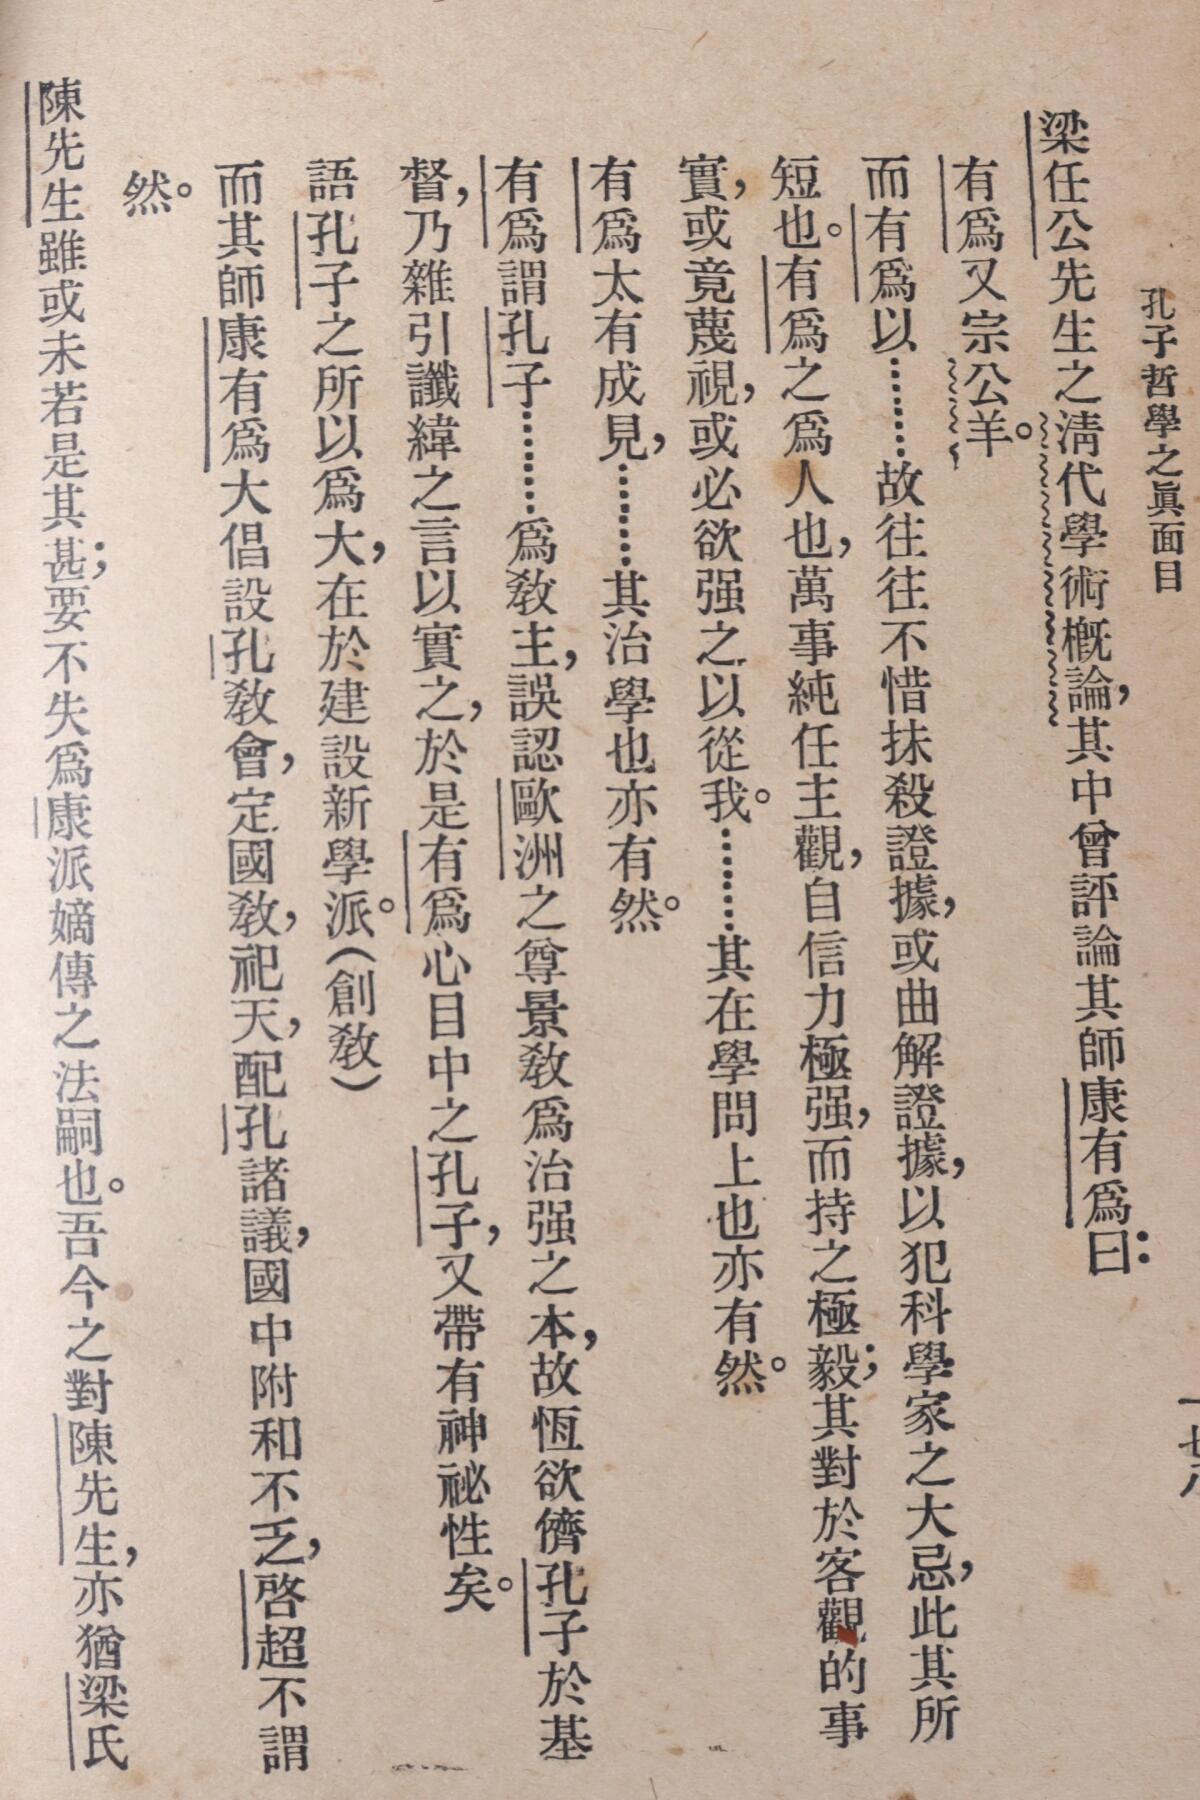 孔子哲學之眞面目
梁任公先生之淸代學術槪論，其中曾評論其師康有爲曰：
有爲又宗公羊。
而有爲以……故往往不惜抹殺證據，或曲解證據，以犯科學家之大忌，此其所
短也。有爲之爲人也，萬事純任主觀，自信力極强，而持之極毅；其對於客觀的事
實，或竟蔑視，或必欲强之以從我。……其在學問上也亦有然。
有爲太有成見，……其治學也亦有然。
有爲謂孔子……爲敎主，誤認歐洲之尊景敎爲治强之本，故恆欲儕孔子於基
督，乃雜引讖緯之言以實之，於是有爲心目中之孔子，又帶有神祕性矣。
語孔子之所以爲大，在於建設新學派。（創敎）
而其師康有爲大倡設孔敎會，定國敎，祀天，配孔諸議，國中附和不乏，啓超不謂
然。
陳先生雖或未若是其甚；要不失爲康派嫡傳之法嗣也。吾今之對陳先生，亦猶梁氏